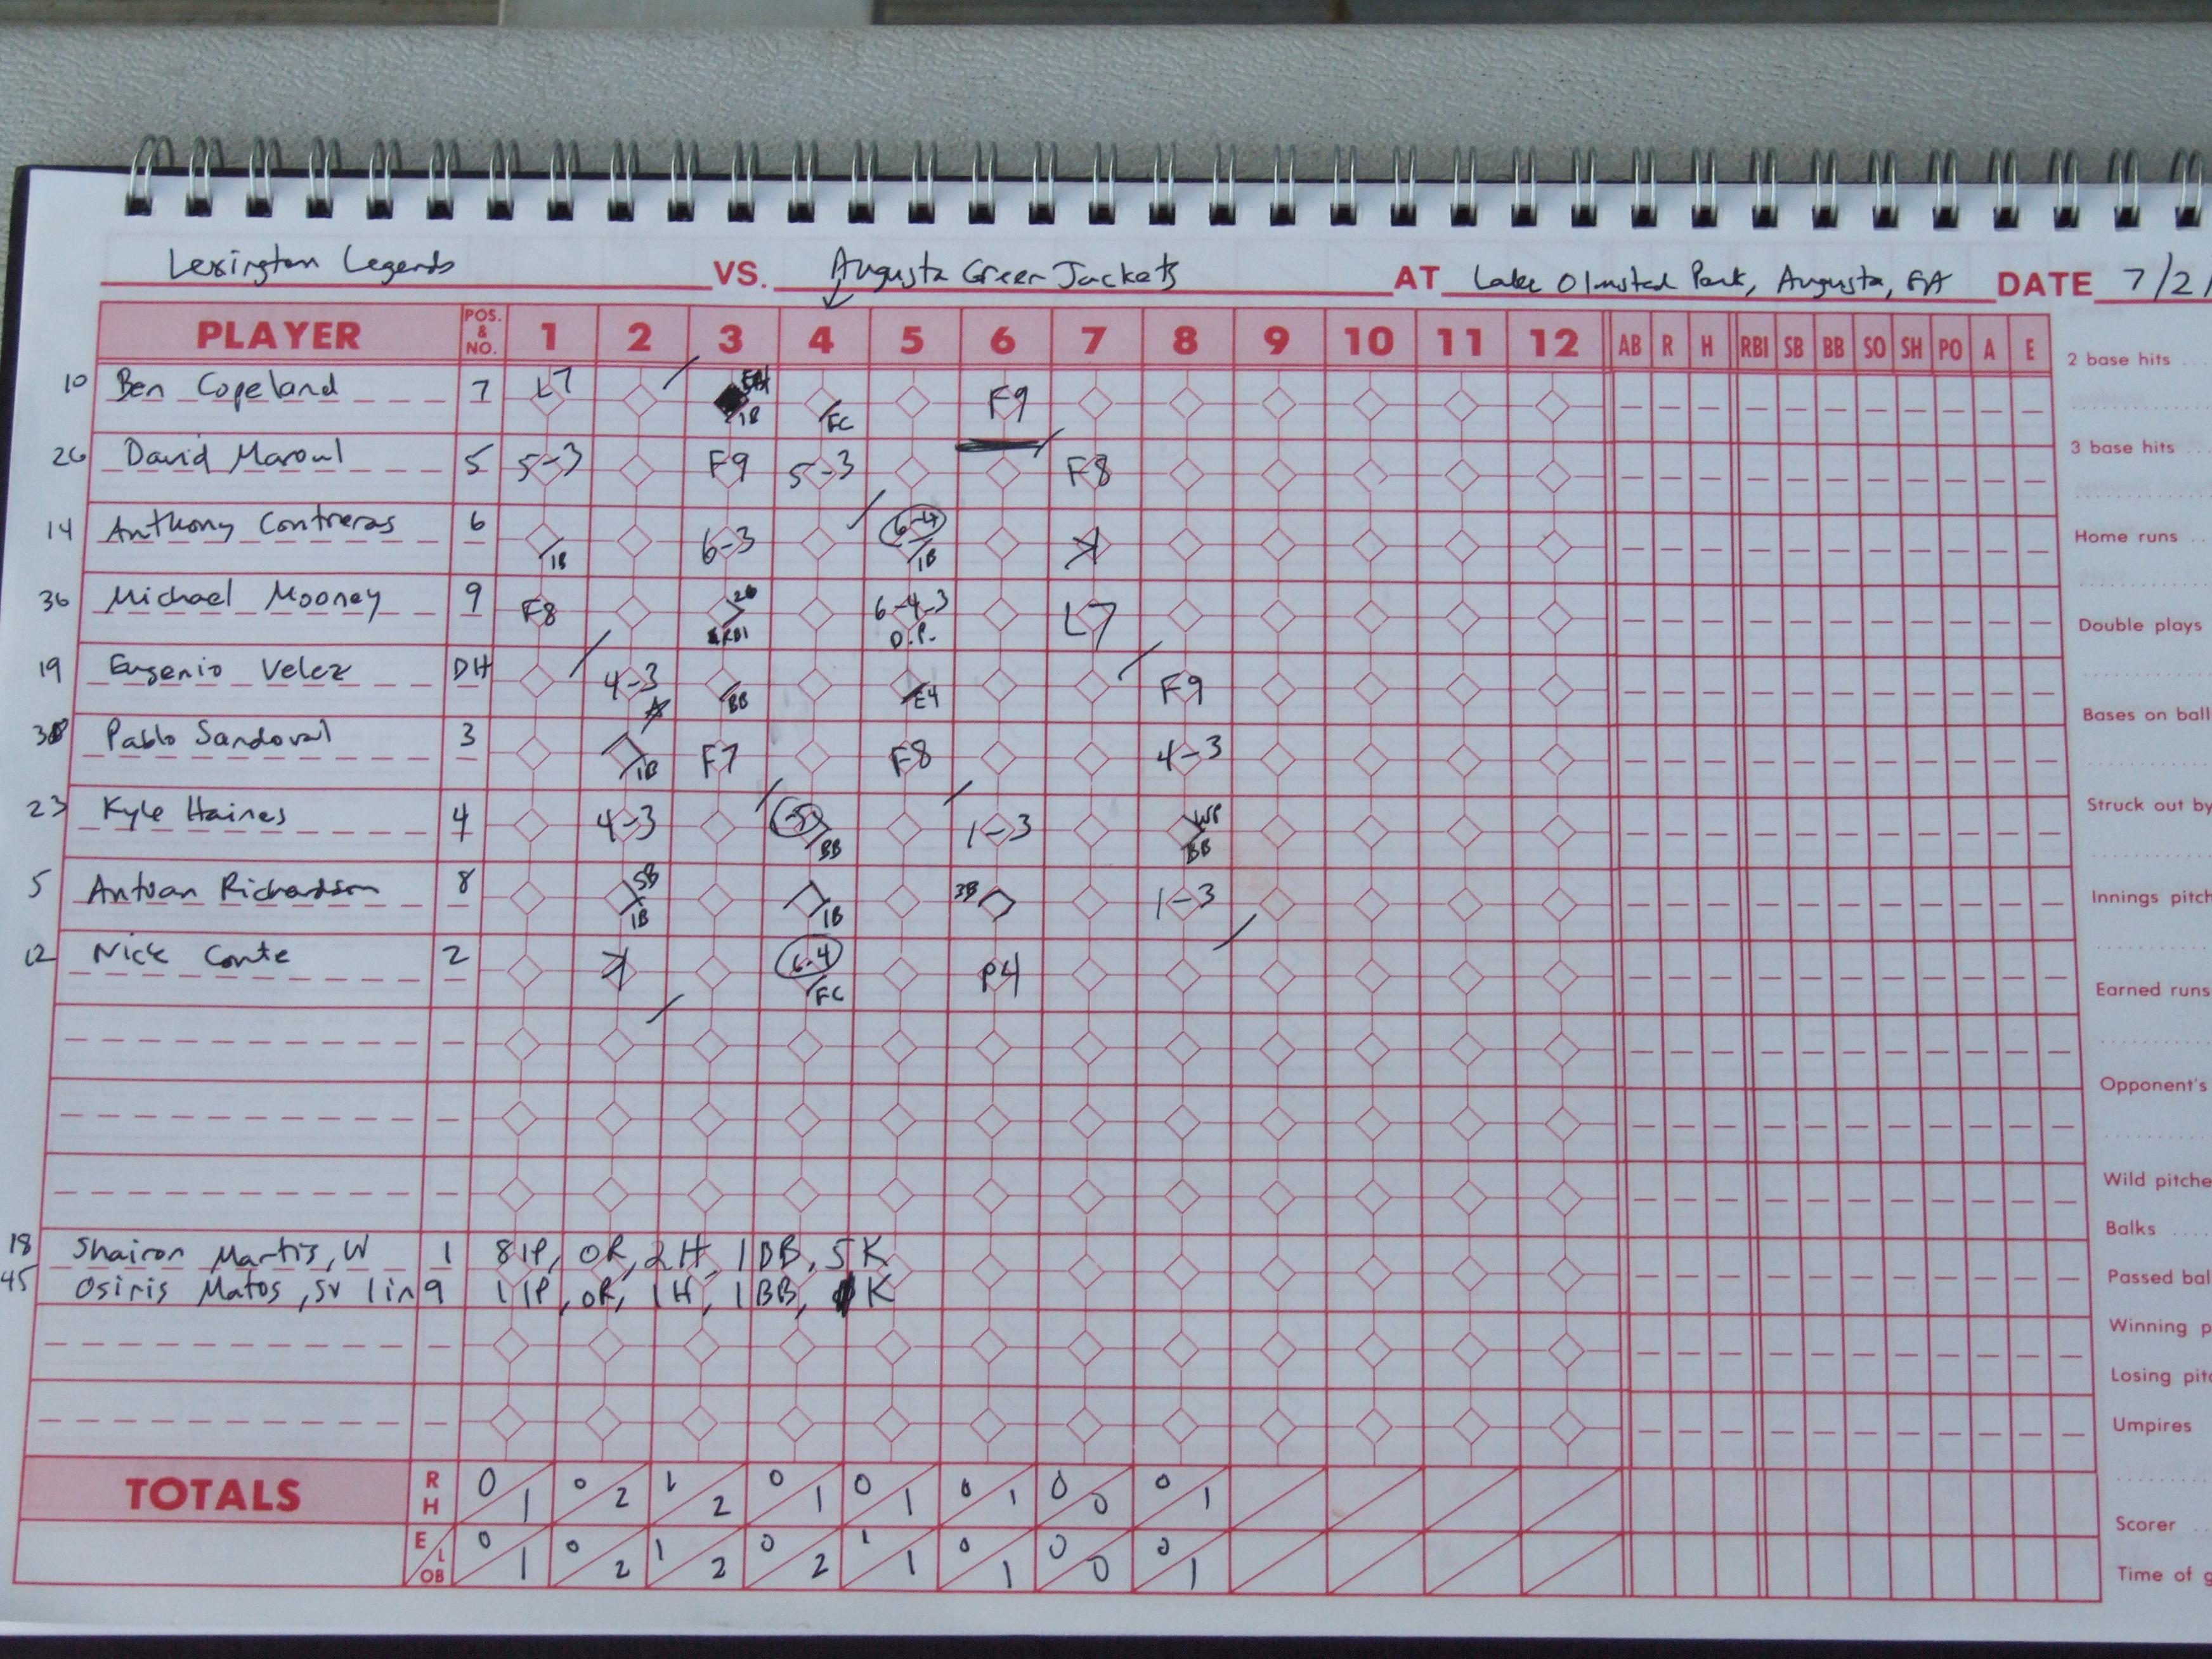 Lexington Legends VS. Augusta Green Jackets AT Lake Olmsted Park, Augusta, GA DATE 7/2/
PLAYER POS. & NO. 1 2 3 4 5 6 7 8 9 10 11 12 AB R H RBI SB BB SO SH PO A E
2 base hits
10 Ben Copeland 7 L7 1B FC F9
3 base hits
26 David Maroul 5 5-3 F9 5-3 F8
14 Anthony Contreras 6 1B 6-3 6-4 1B K
Home runs
36 Michael Mooney 9 F8 2B RBI 6-4-3 D.P. L7
Double plays
19 Eugenio Velez DH 4-3 BB E4 F9
Bases on ball
Pablo Sandoval 3 1B F7 F8 4-3
23 Kyle Haines 4 4-3 BB 1-3 WP BB
Struck out by
5 Antoan Richardson 8 SB 1B 1B 3B 1-3
Innings pitch
12 Nick Conte 2 K 6-4 FC P4
Earned runs
Opponent's
Wild pitche
Balks
18 Shairon Martis, W 1 8 IP, 0R, 2H, 1BB, 5K
Passed bal
45 Osiris Matos, SV 1 in 9 1 IP, 0R, 1H, 1BB, K
Winning p
Losing pitc
Umpires
TOTALS R H 0 1 0 2 1 2 0 1 0 1 0 1 0 0 0 1
Scorer
E LOB 0 1 0 2 1 2 0 2 1 1 0 1 0 0 0 1
Time of g